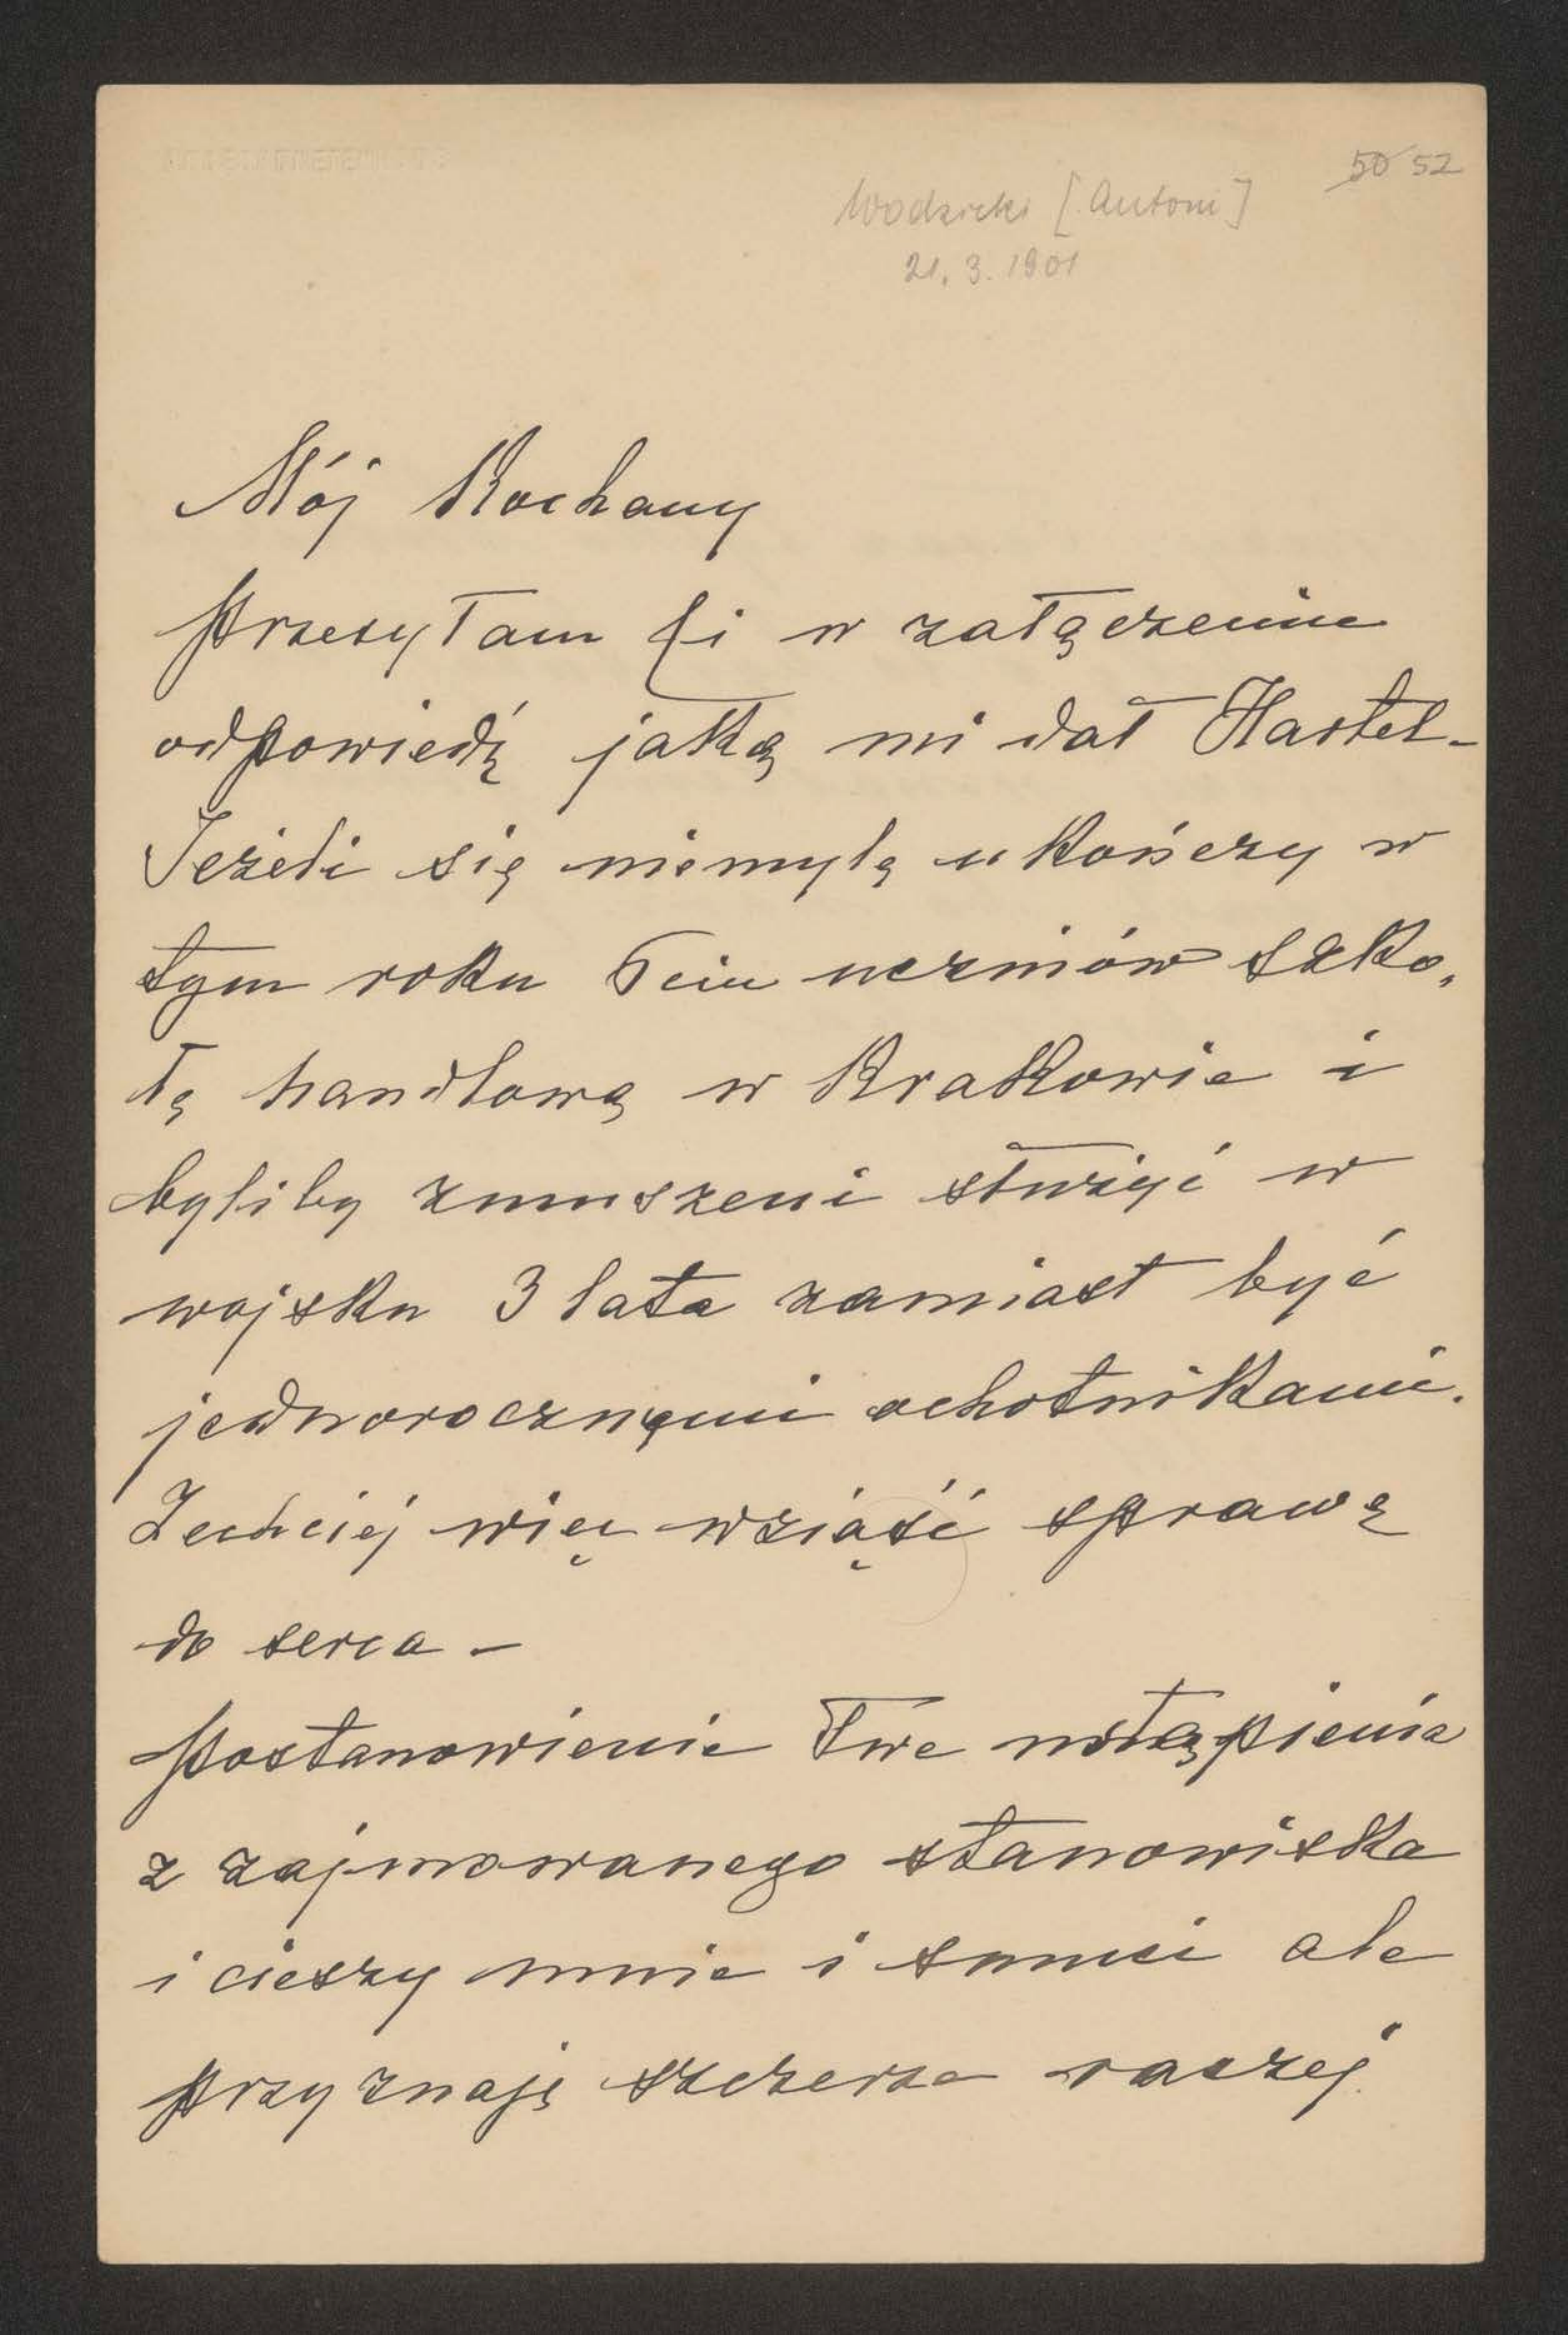 50 52
Wodzicki [Antoni]
21. 3. 1901
Mój Kochany
Przesyłam Ci w załączeniu
odpowiedź jaką mi dał Hartel -
Jeżeli się niemylę ukończy w
tym roku 5ciu uczniów szko„
łę handlową w Krakowie i
byliby zmuszeni służyć w
wojsku 3 lata zamiast być
jednorocznymi ochotnikami.
Zechciej więc wziąść sprawę
do serca -
Postanowienie Twe ustąpienia
z zajmowanego stanowiska
i cieszy mnie i smuci ale
przyznaję szczerze raczej